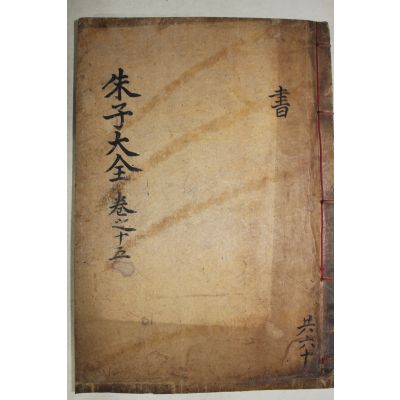 書
朱子大全 卷之十五
共六十